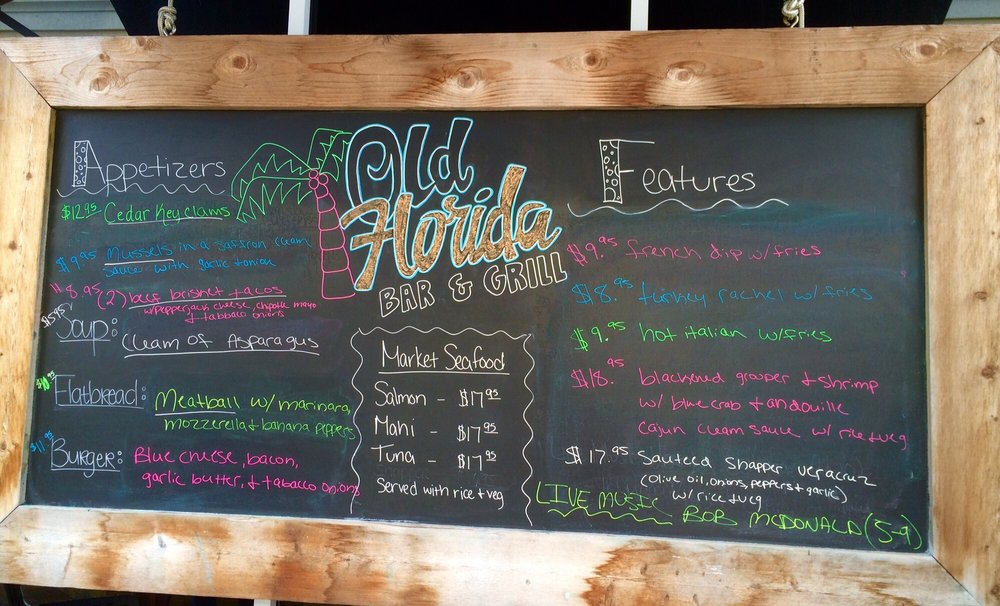 Appetizers
$12.95 Cedar Key clams
$9.95 Mussels in a Saffron cream
sauce with garlic + onion
$8.95 (2) beef brisket tacos
w/ pepperjack cheese, chipotle mayo
+ tabbaco onions
$5.95
Soup:
Cream of Asparagus
Flatbread: Meatball w/ marinara,
mozzerella + banana peppers
$11.95
Burger: Blue cheese, bacon,
garlic butter, + tabacco onions
Old
Florida
BAR & GRILL
Market Seafood
Salmon - $17.95
Mahi - $17.95
Tuna - $17.95
Served with rice + veg
Features
$9.95 french dip w/ fries
$8.95 turkey rachel w/ fries
$9.95 hot italian w/fries
$18.95 blackened grouper + shrimp
w/ blue crab + andouille
cajun cream sauce w/ rice + veg
$17.95 sauteed snapper veracruz
(olive oil, onions, peppers + garlic)
w/ rice + veg
LIVE MUSIC BOB MCDONALD (5-9)